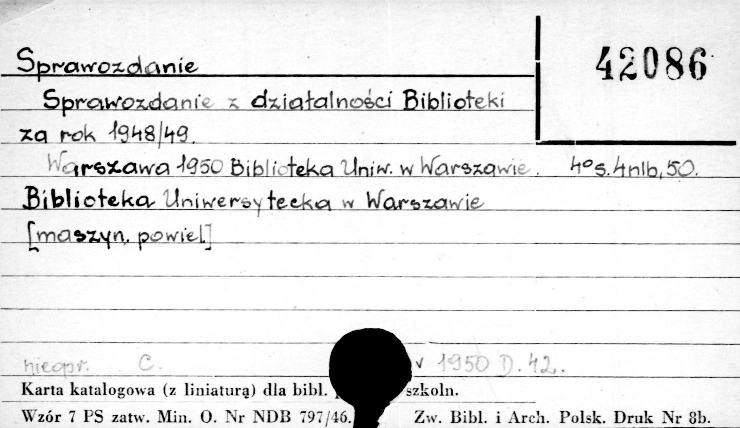 Sprawozdanie
42086
Sprawozdanie z działalności Biblioteki
za rok 1948/49.
Warszawa 1950 Biblioteka Uniw. w Warszawie. 4° s. 4nlb, 50.
Biblioteka Uniwersytecka w Warszawie
[maszyn. powiel.]
nieopr. C. v 1950 D. 42.
Karta katalogowa (z liniaturą) dla bibl. szkoln.
Wzór 7 PS zatw. Min. O. Nr NDB 797/46. Zw. Bibl. i Arch. Polsk. Druk Nr 8b.